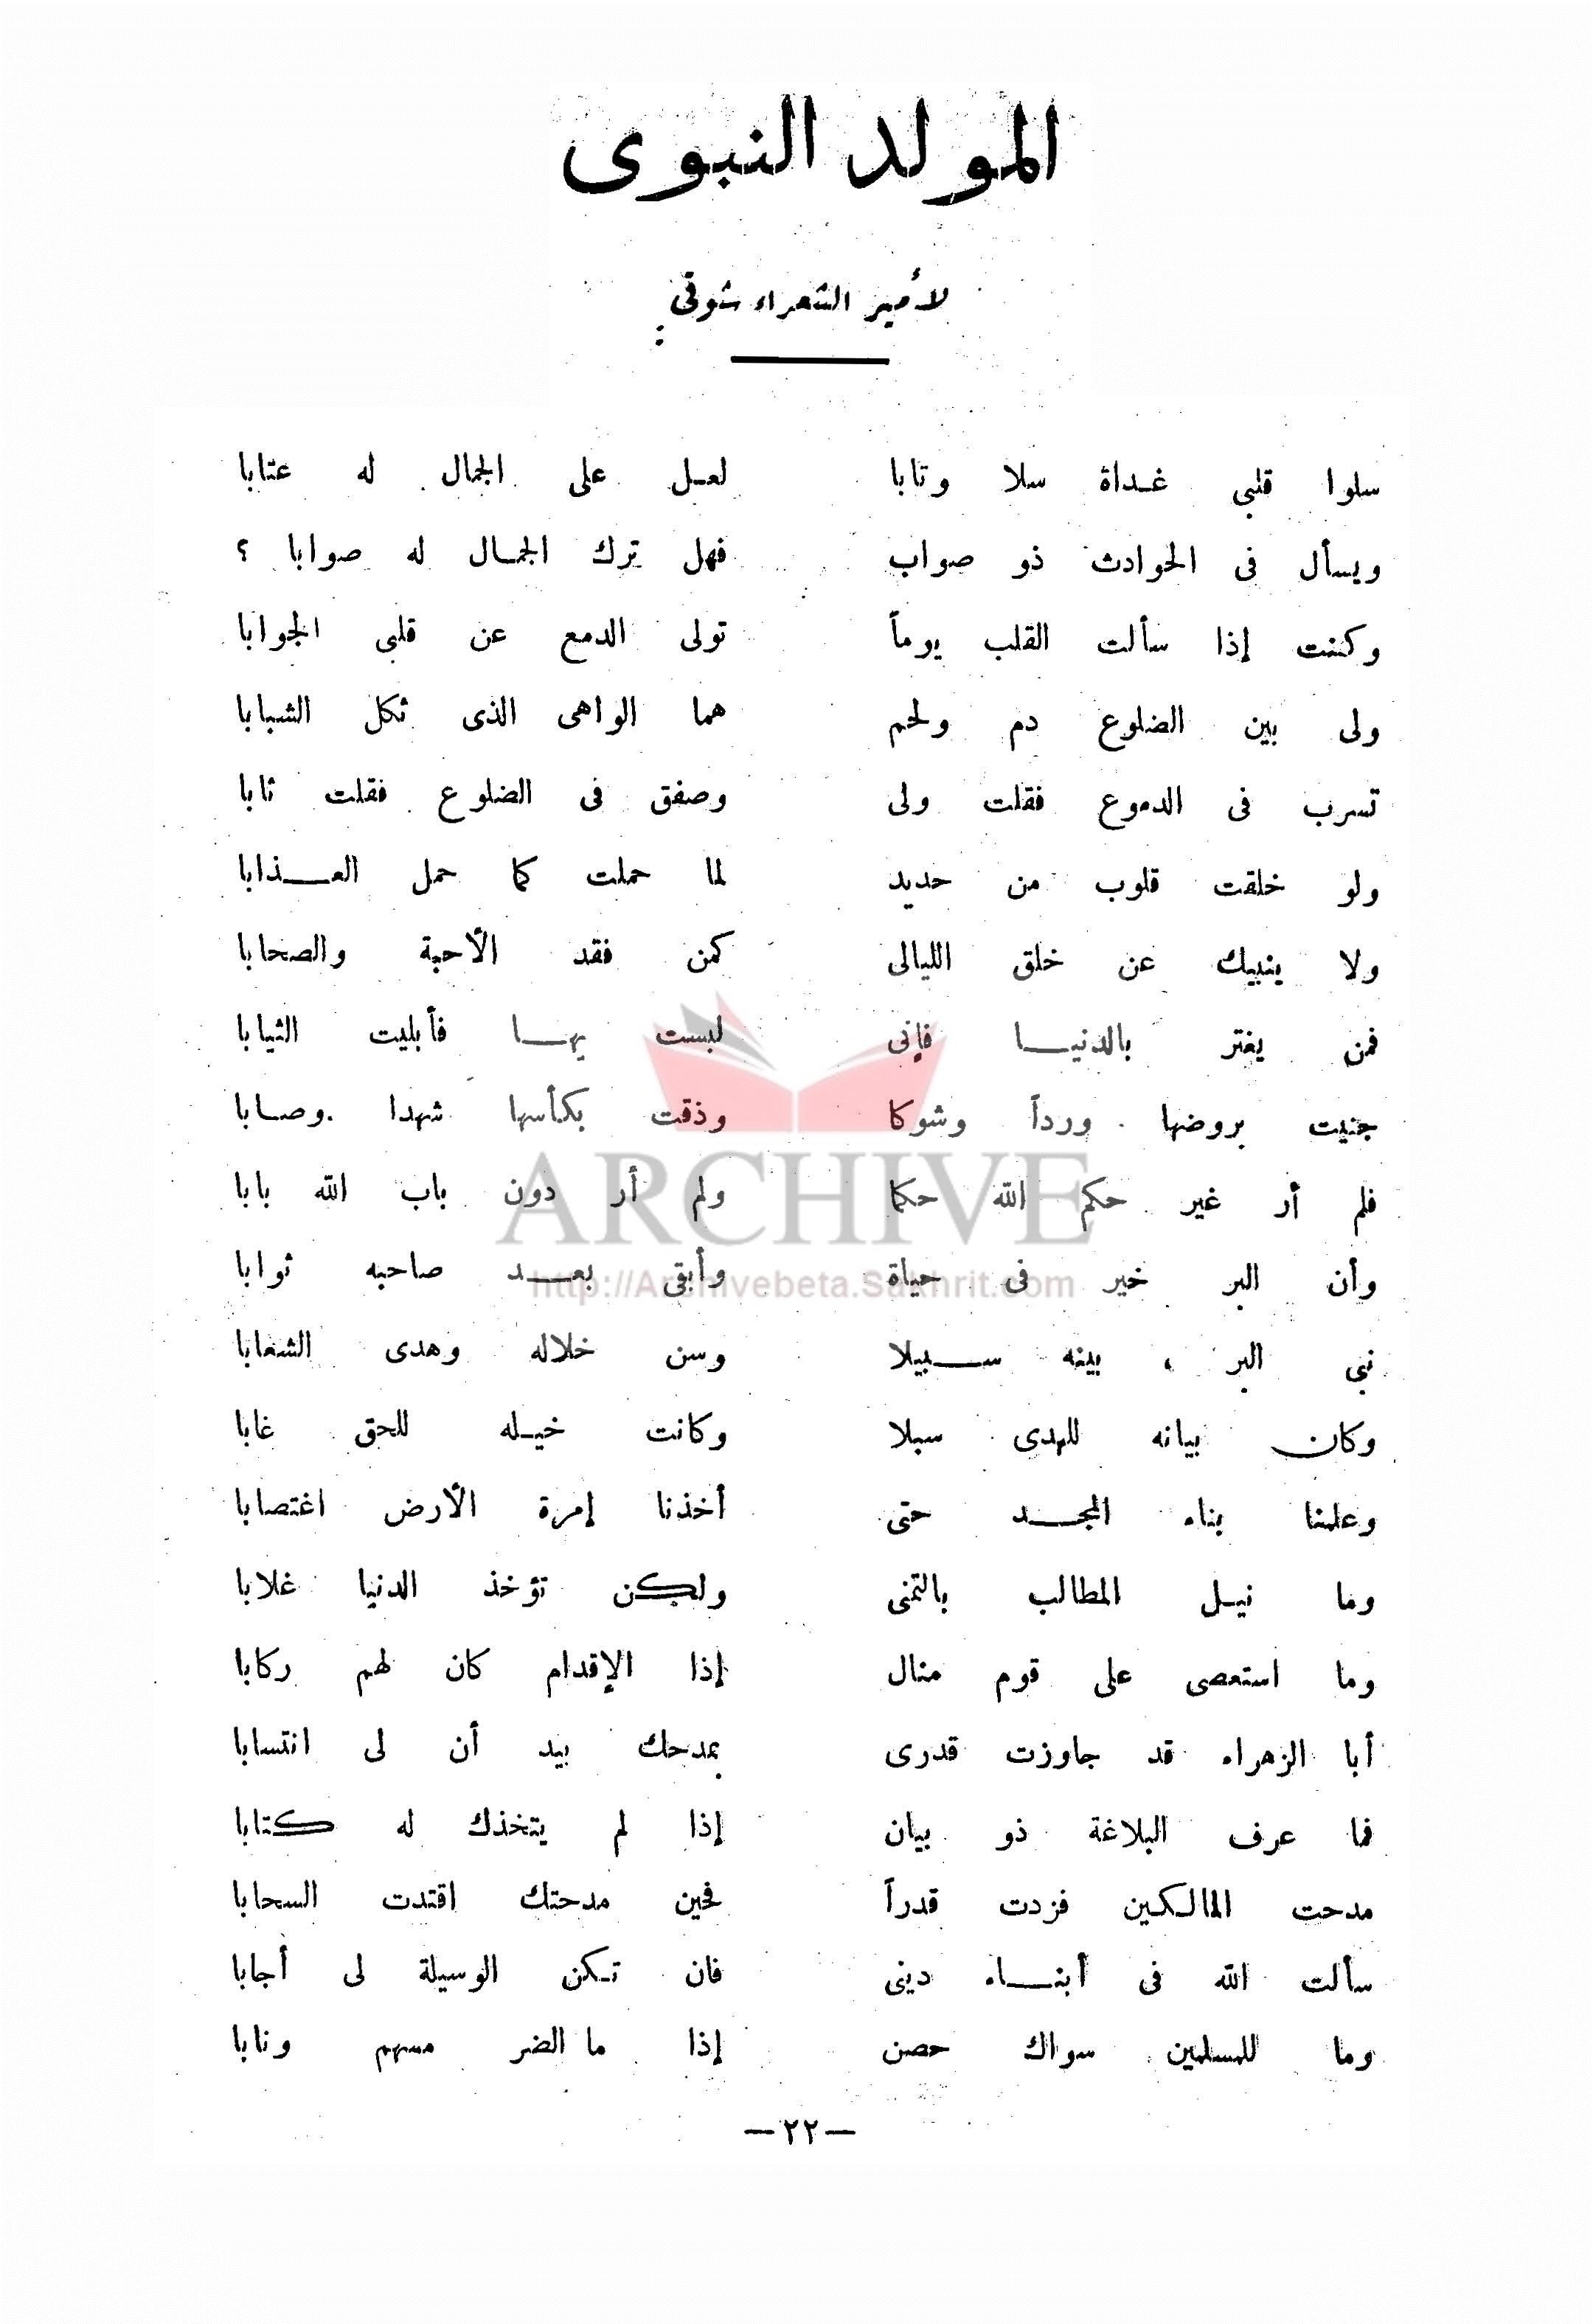 المولد النبوى
لأمير الشعراء شوقى :
سلوا قلبى غداة سلا وتابا لعل على الجمال له عتابا
ويسأل فى الحوادث ذو صواب فهل ترك الجمال له صوابا ؟
وكنت إذا سألت القلب يوماً تولى الدمع عن قلبى الجوابا
ولى بين الضلوع دم ولحم هما الواهى الذى ثكل الشبابا
تسرب فى الدموع فقلت ولى وصفق فى الضلوع فقلت ثابا
ولو خلقت قلوب من حديد لما حملت كما حمل العذابا
ولا ينبيك عن خلق الليالى كمن فقد الأحبة والصحابا
فمن يغتر بالدنيا فإنى لبست بها فأبليت الثيابا
جنيت بروضها ورداً وشوكا وذقت بكأسها شهدا وصابا
فلم أر غير حكم الله حكما ولم أر دون باب الله بابا
ARCHIVE
وأن البر خير فى حياة وأبقى بعد صاحبه ثوابا
http://Archivebeta.Sakhrit.com
نبى البر ، بينه سبيلا وسن خلاله وهدى الشعابا
وكان بيانه للهدى سبلا وكانت خيله للحق غابا
وعلمنا بناء المجد حتى أخذنا إمرة الأرض اغتصابا
وما نيل المطالب بالتمنى ولكن تؤخذ الدنيا غلابا
وما استعصى على قوم منال إذا الإقدام كان لهم ركابا
أبا الزهراء قد جاوزت قدرى بمدحك بيد أن لى انتسابا
فما عرف البلاغة ذو بيان إذا لم يتخذك له كتابا
مدحت المالكين فزدت قدراً فحين مدحتك اقتدت السحابا
سألت الله فى أبناء دينى فان تكن الوسيلة لى أجابا
وما للمسلمين سواك حصن إذا ما الضر مسهم ونابا
— ٢٢ —